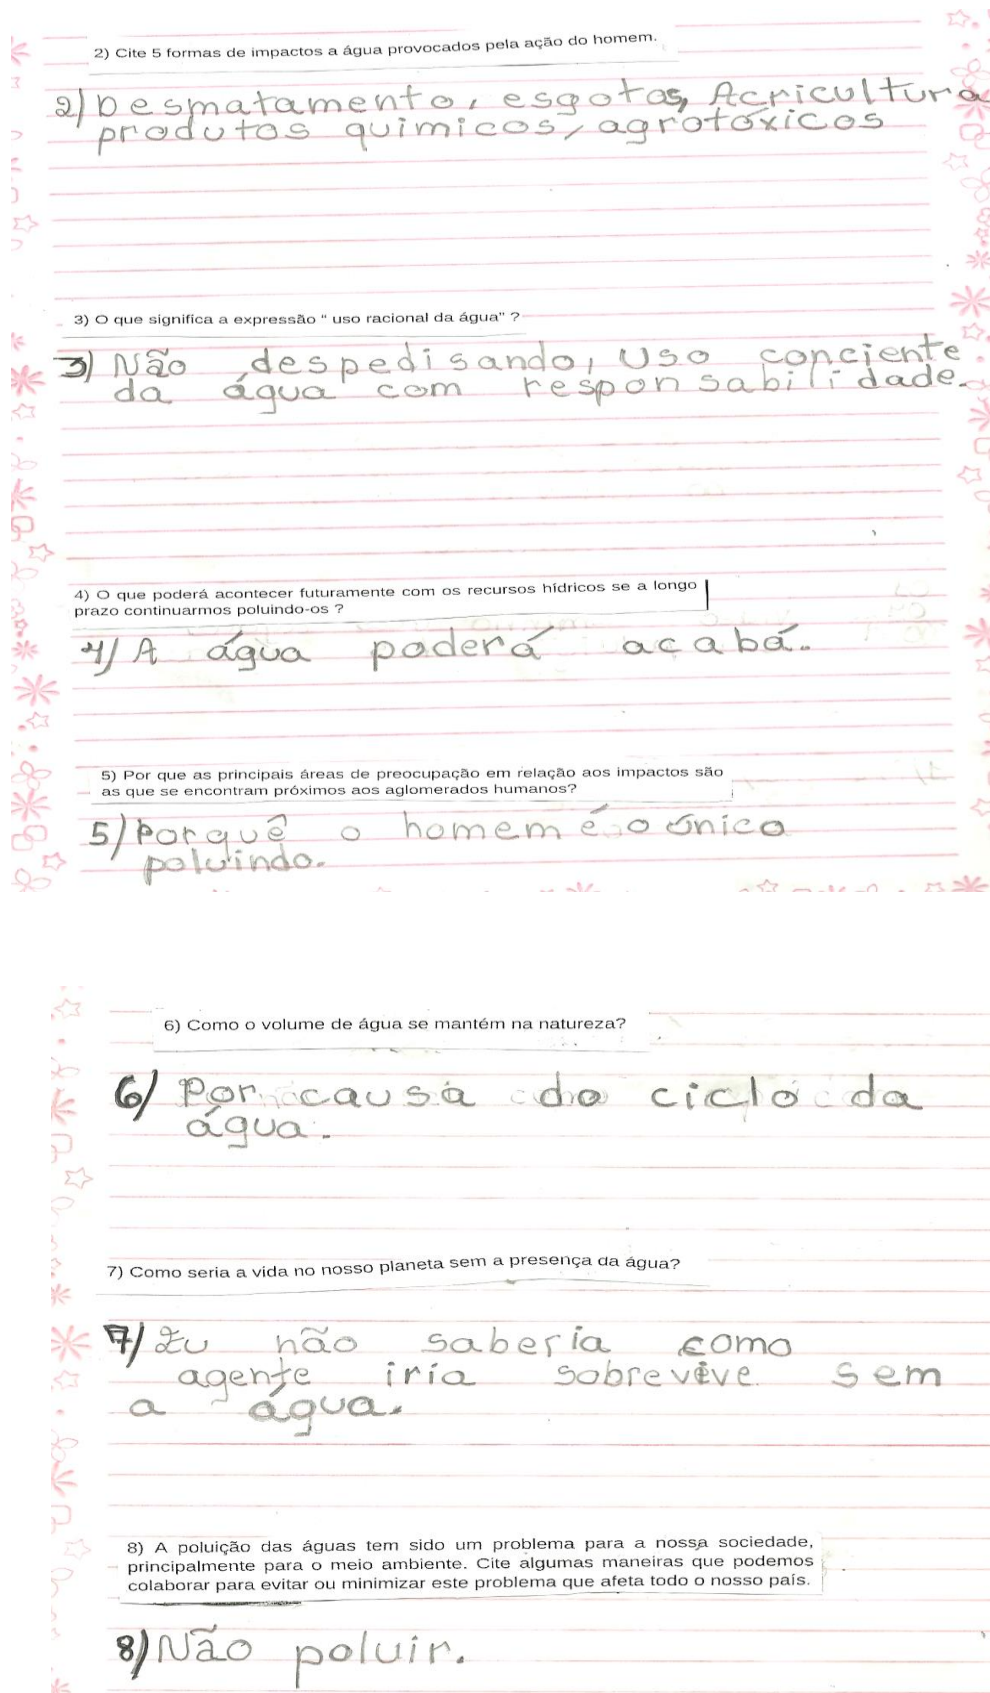 2) Cite 5 formas de impactos a água provocados pela ação do homem.
2) Desmatamento, esgotos, Acricultura
produtos quimicos, agrotóxicos
3) O que significa a expressão “ uso racional da água” ?
3) Não despedisando, uso conciente
da água com responsabilidade.
4) O que poderá acontecer futuramente com os recursos hídricos se a longo
prazo continuarmos poluindo-os ?
4) A água poderá acabá.
5) Por que as principais áreas de preocupação em relação aos impactos são
as que se encontram próximos aos aglomerados humanos?
5) Porquê o homem é o único
poluindo.
6) Como o volume de água se mantém na natureza?
6) Por causa do ciclo da
água.
7) Como seria a vida no nosso planeta sem a presença da água?
7) Eu não saberia como
agente iria sobrevive sem
a água.
8) A poluição das águas tem sido um problema para a nossa sociedade,
principalmente para o meio ambiente. Cite algumas maneiras que podemos
colaborar para evitar ou minimizar este problema que afeta todo o nosso país.
8) Não poluir.